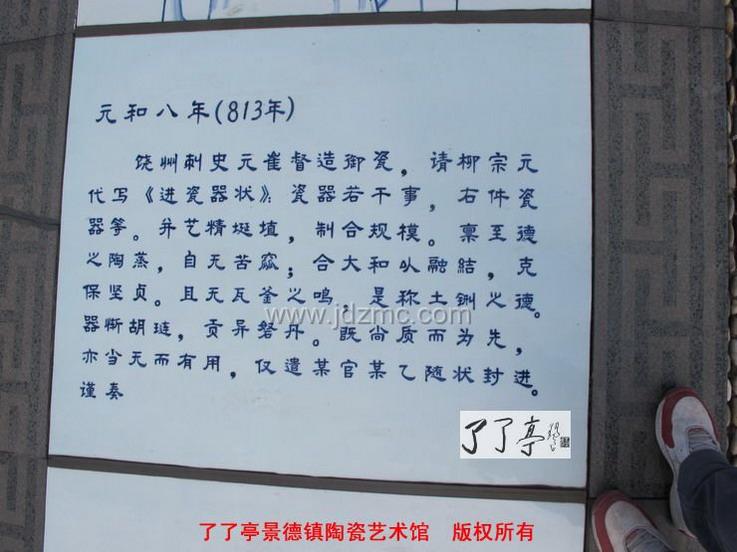 元和八年(813年)
饶州刺史元崔督造御瓷，请柳宗元
代写《进瓷器状》：瓷器若干事，右件瓷
器等。并艺精埏埴，制合规模。禀至德
之陶蒸，自无苦窳；合大和以融结，克
保坚贞。且无瓦釜之鸣，是称土铏之德。
器惭胡琏，贡异砮丹。既尚质而为先，
亦当无而有用，仅遣某官某乙随状封进。
谨奏
www.jdzmc.com
了了亭
了了亭景德镇陶瓷艺术馆 版权所有